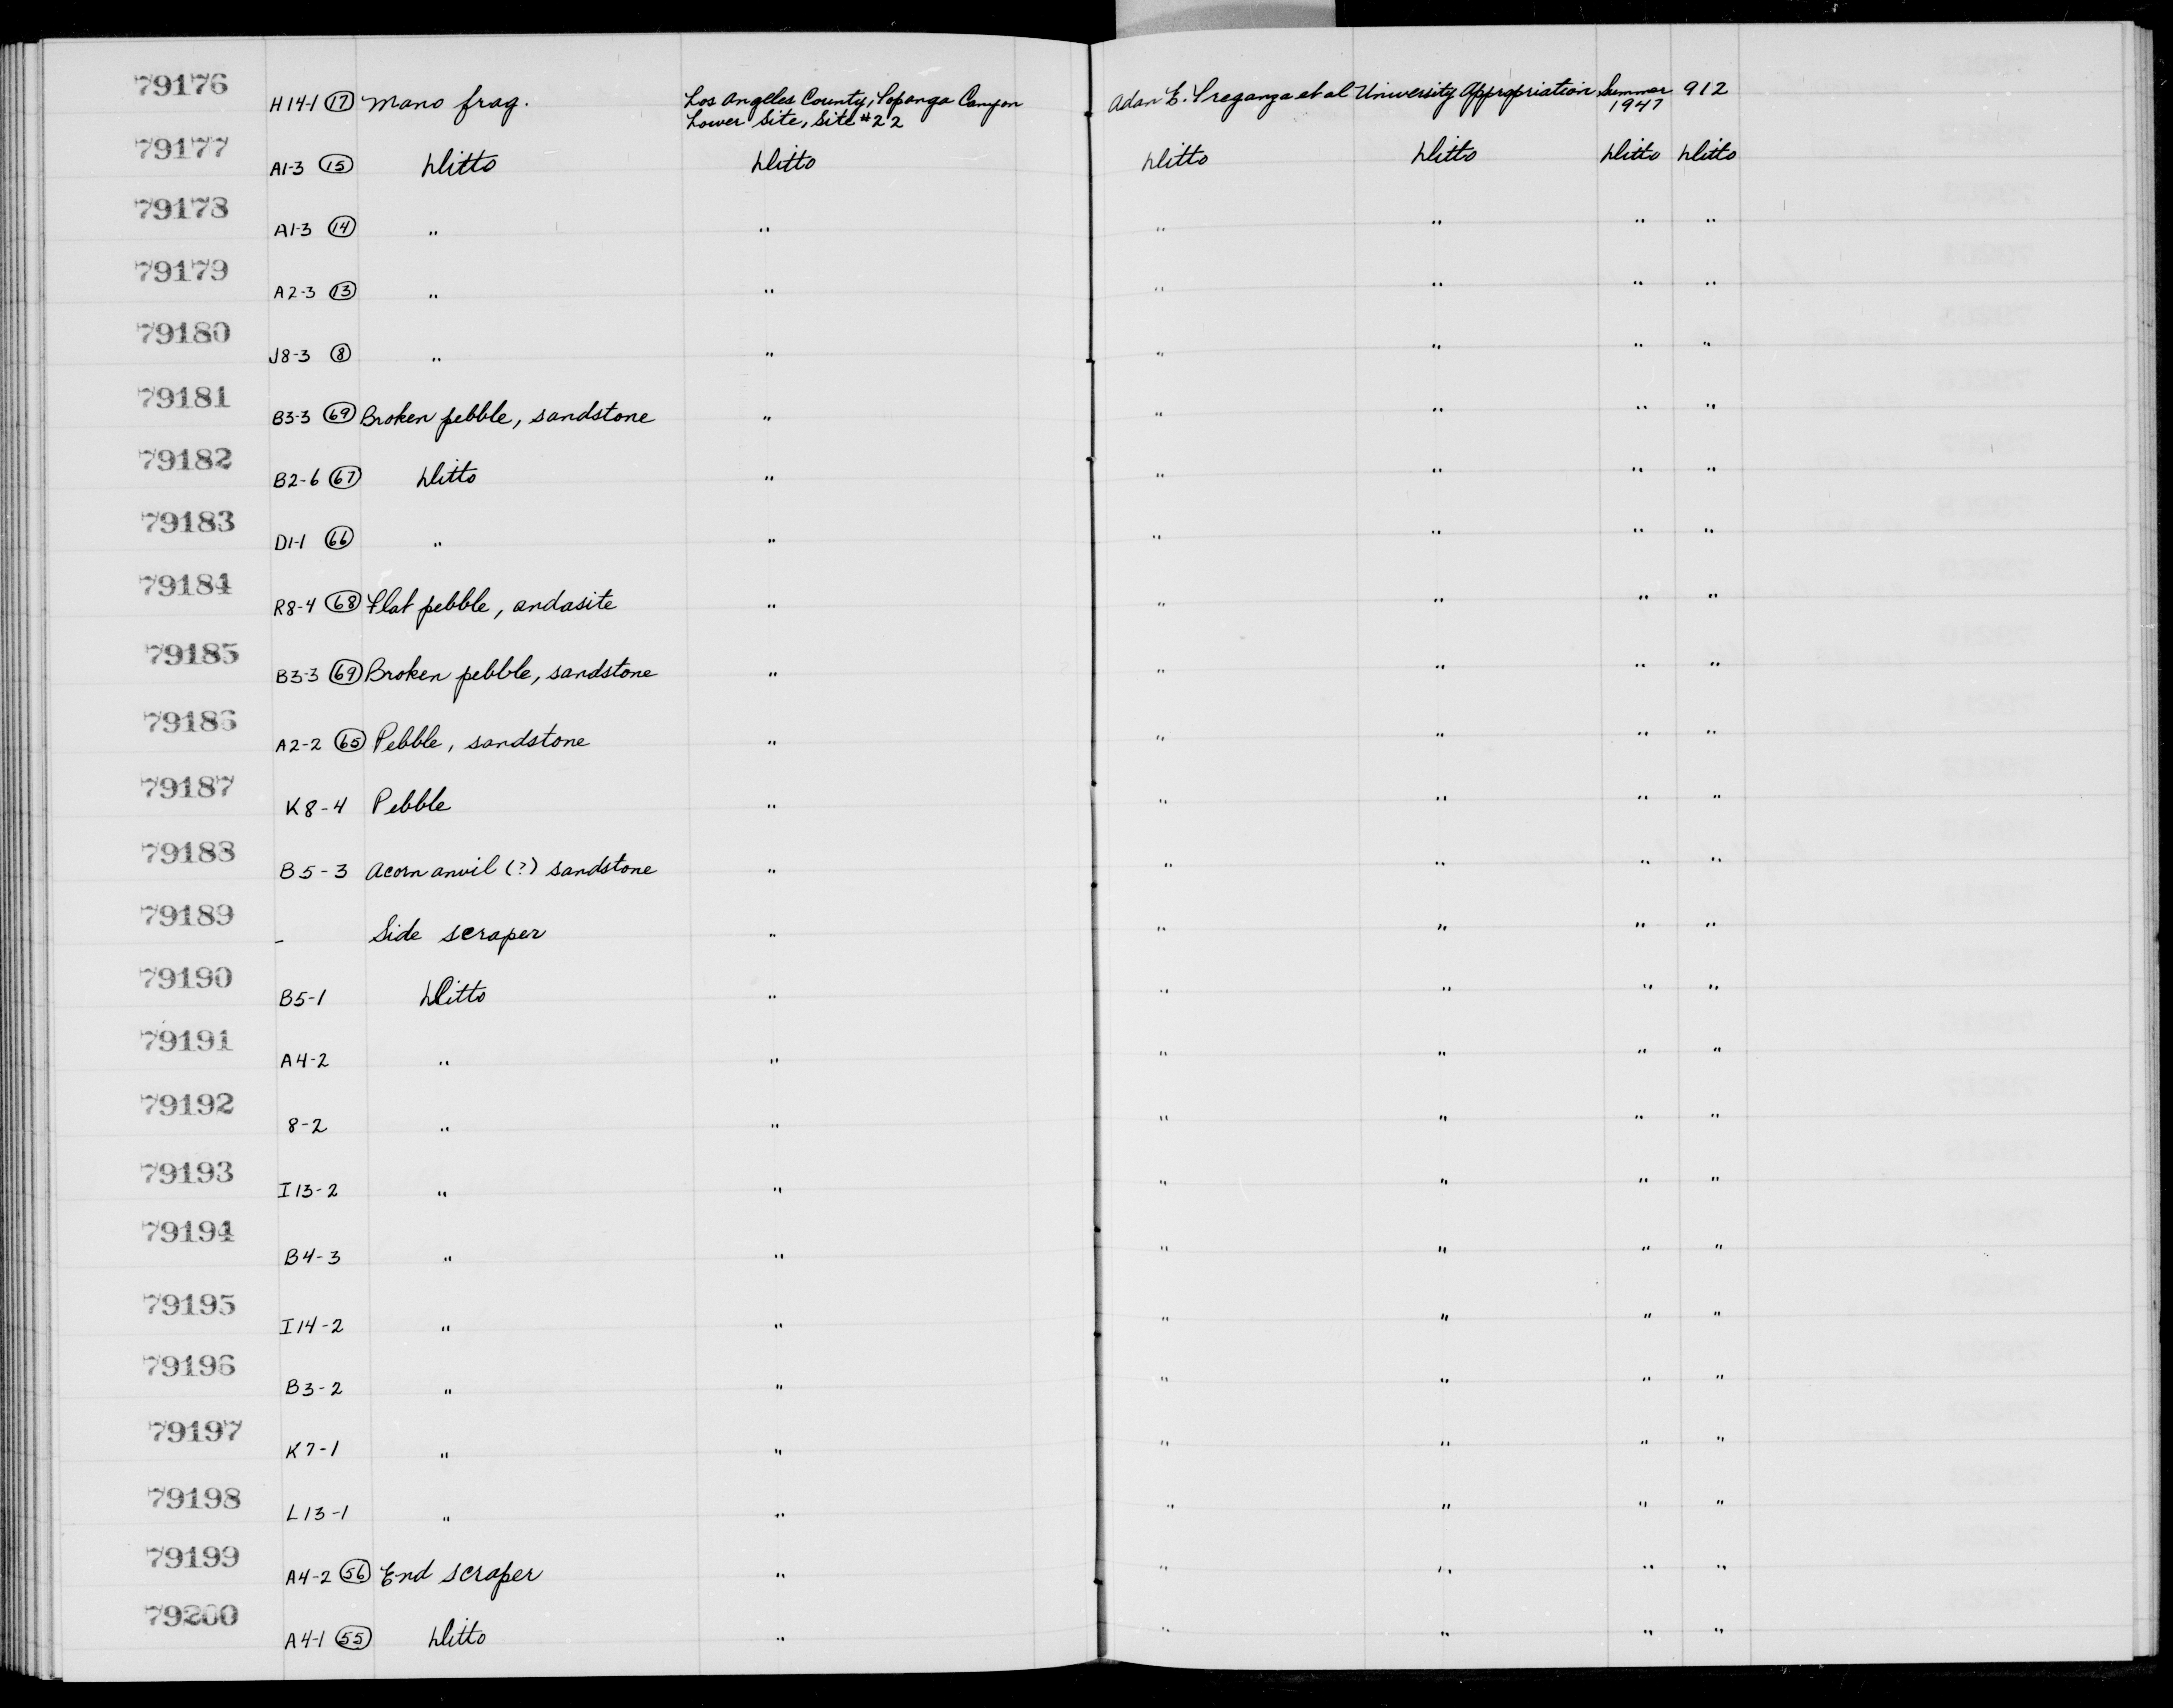 79176 H14-1 (17) Mano frag. Los Angeles County, Topanga Canyon Adan E. Treganza et al University Appropriation Summer 912
Lower Site, Site #22 1947
79177 A1-3 (15) Ditto Ditto Ditto Ditto Ditto Ditto
79178 A1-3 (14) " " " " " "
79179 A2-3 (13) " " " " " "
79180 J8-3 (8) " " " " " "
79181 B3-3 (69) Broken pebble, sandstone " " " " "
79182 B2-6 (67) Ditto " " " " "
79183 D1-1 (66) " " " " " "
79184 R8-4 (68) Flat pebble, andasite " " " " "
79185 B3-3 (69) Broken pebble, sandstone " " " " "
79186 A2-2 (65) Pebble, sandstone " " " " "
79187 K8-4 Pebble " " " " "
79188 B5-3 Acorn anvil (?) sandstone " " " " "
79189 - Side scraper " " " " "
79190 B5-1 Ditto " " " " "
79191 A4-2 " " " " " "
79192 8-2 " " " " " "
79193 I13-2 " " " " " "
79194 B4-3 " " " " " "
79195 I14-2 " " " " " "
79196 B3-2 " " " " " "
79197 K7-1 " " " " " "
79198 L13-1 " " " " " "
79199 A4-2 (56) End scraper " " " " "
79200 A4-1 (55) Ditto " " " " "